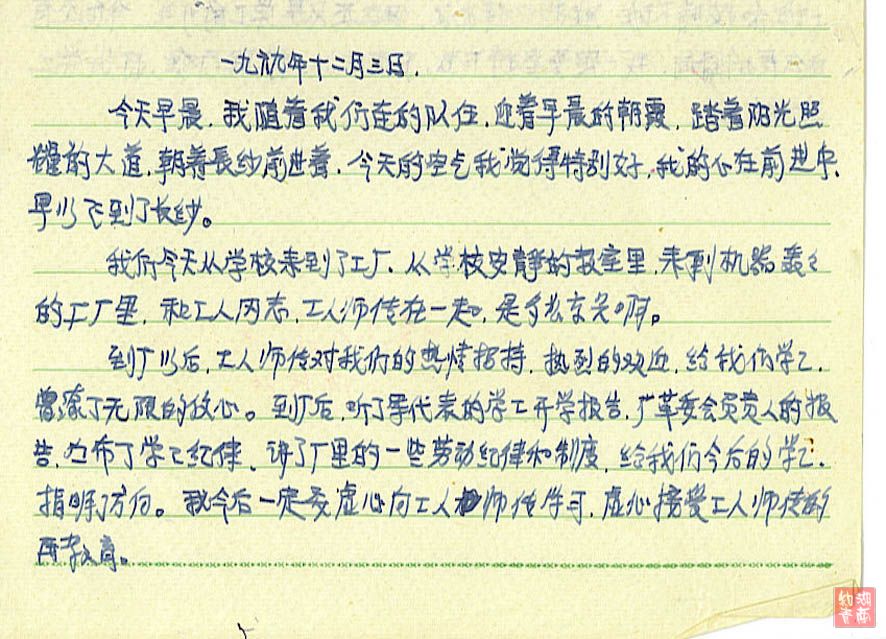 一九六九年十二月三日.
今天早晨,我随着我们连的队伍,迎着早晨的朝霞,踏着阳光照
耀的大道,朝着长纱前进着,今天的空气我觉得特别好,我的心在前进中,
早以飞到了长纱。
我们今天从学校来到了工厂,从学校安静的教室里,来到机器轰々
的工厂里,和工人同志,工人师傅在一起,是多么光荣啊。
到厂以后,工人师傅对我们的热情招待,热烈的欢迎,给我们学工
增添了无限的放心。到厂后,听了军代表的学工开学报告,厂革委会负责人的报
告,宣布了学工纪律、讲了厂里的一些劳动纪律和制度,给我们今后的学工
指明了方向。我今后一定要虚心向工人师傅学习,虚心接受工人师傅的
再教育。
湖南知青